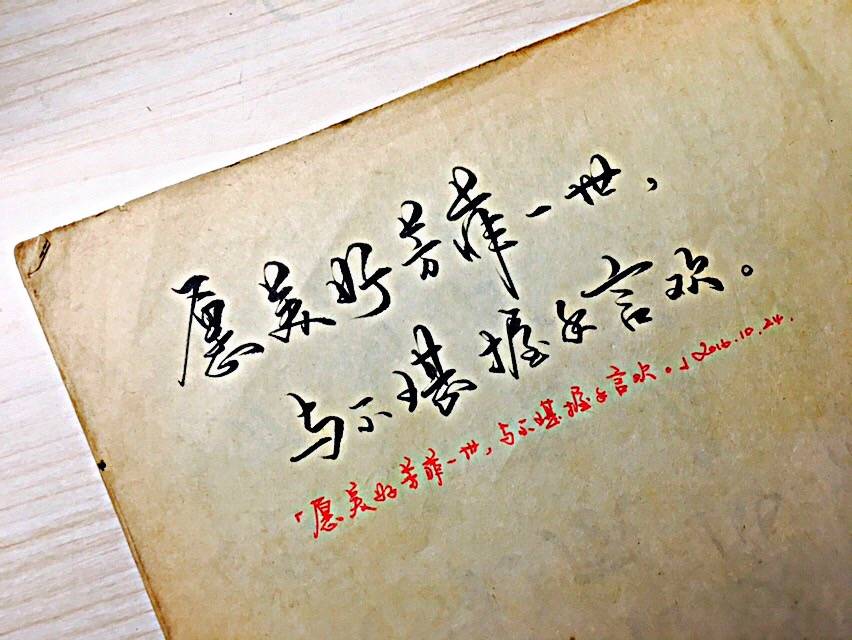 愿美好芳菲一世，
与不堪握手言欢。
「愿美好芳菲一世，与不堪握手言欢。」2016.10.24.